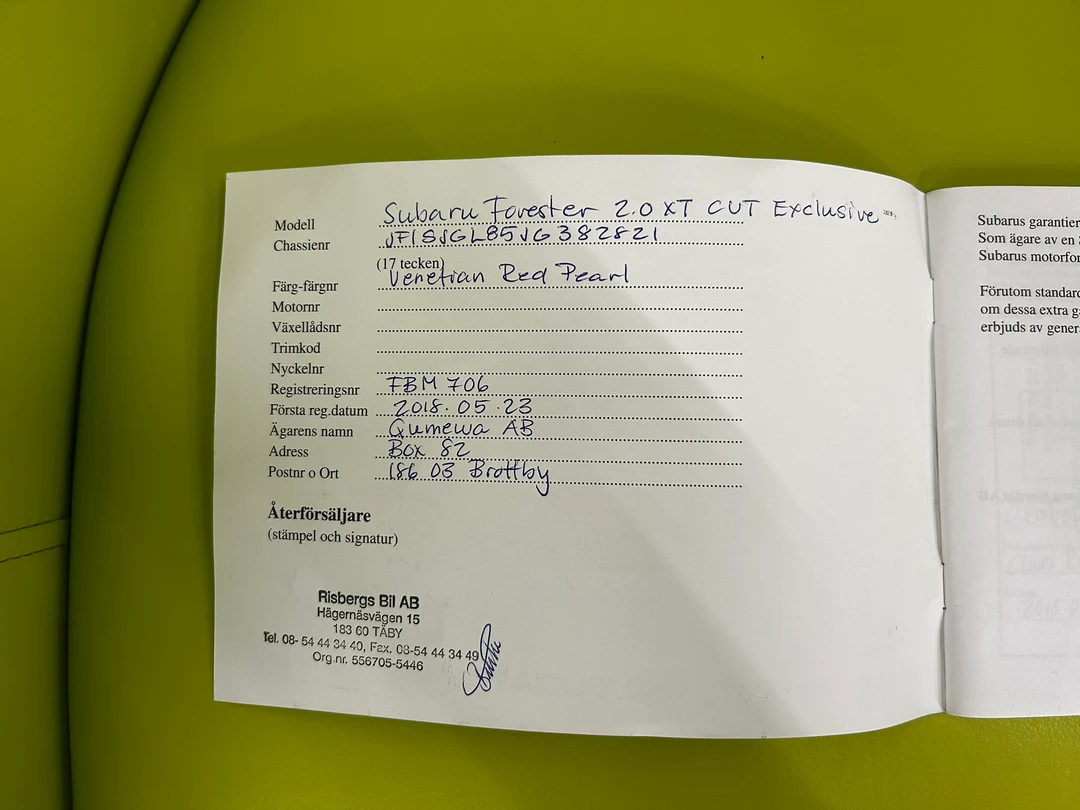 Modell Subaru Forester 2.0 XT CUT Exclusive
Chassienr JF1SJGL85JG382821
(17 tecken)
Färg-färgnr Venetian Red Pearl
Motornr
Växellådsnr
Trimkod
Nyckelnr
Registreringsnr FBM 706
Första reg.datum 2018.05.23
Ägarens namn Qumewa AB
Adress Box 82
Postnr o Ort 186 03 Brottby
Återförsäljare
(stämpel och signatur)
Risbergs Bil AB
Hägernäsvägen 15
183 60 TÄBY
Tel. 08- 54 44 34 40, Fax. 08-54 44 34 49
Org.nr. 556705-5446
Subarus garantier
Som ägare av en
Subarus motorfor
Förutom standard
om dessa extra g
erbjuds av gener